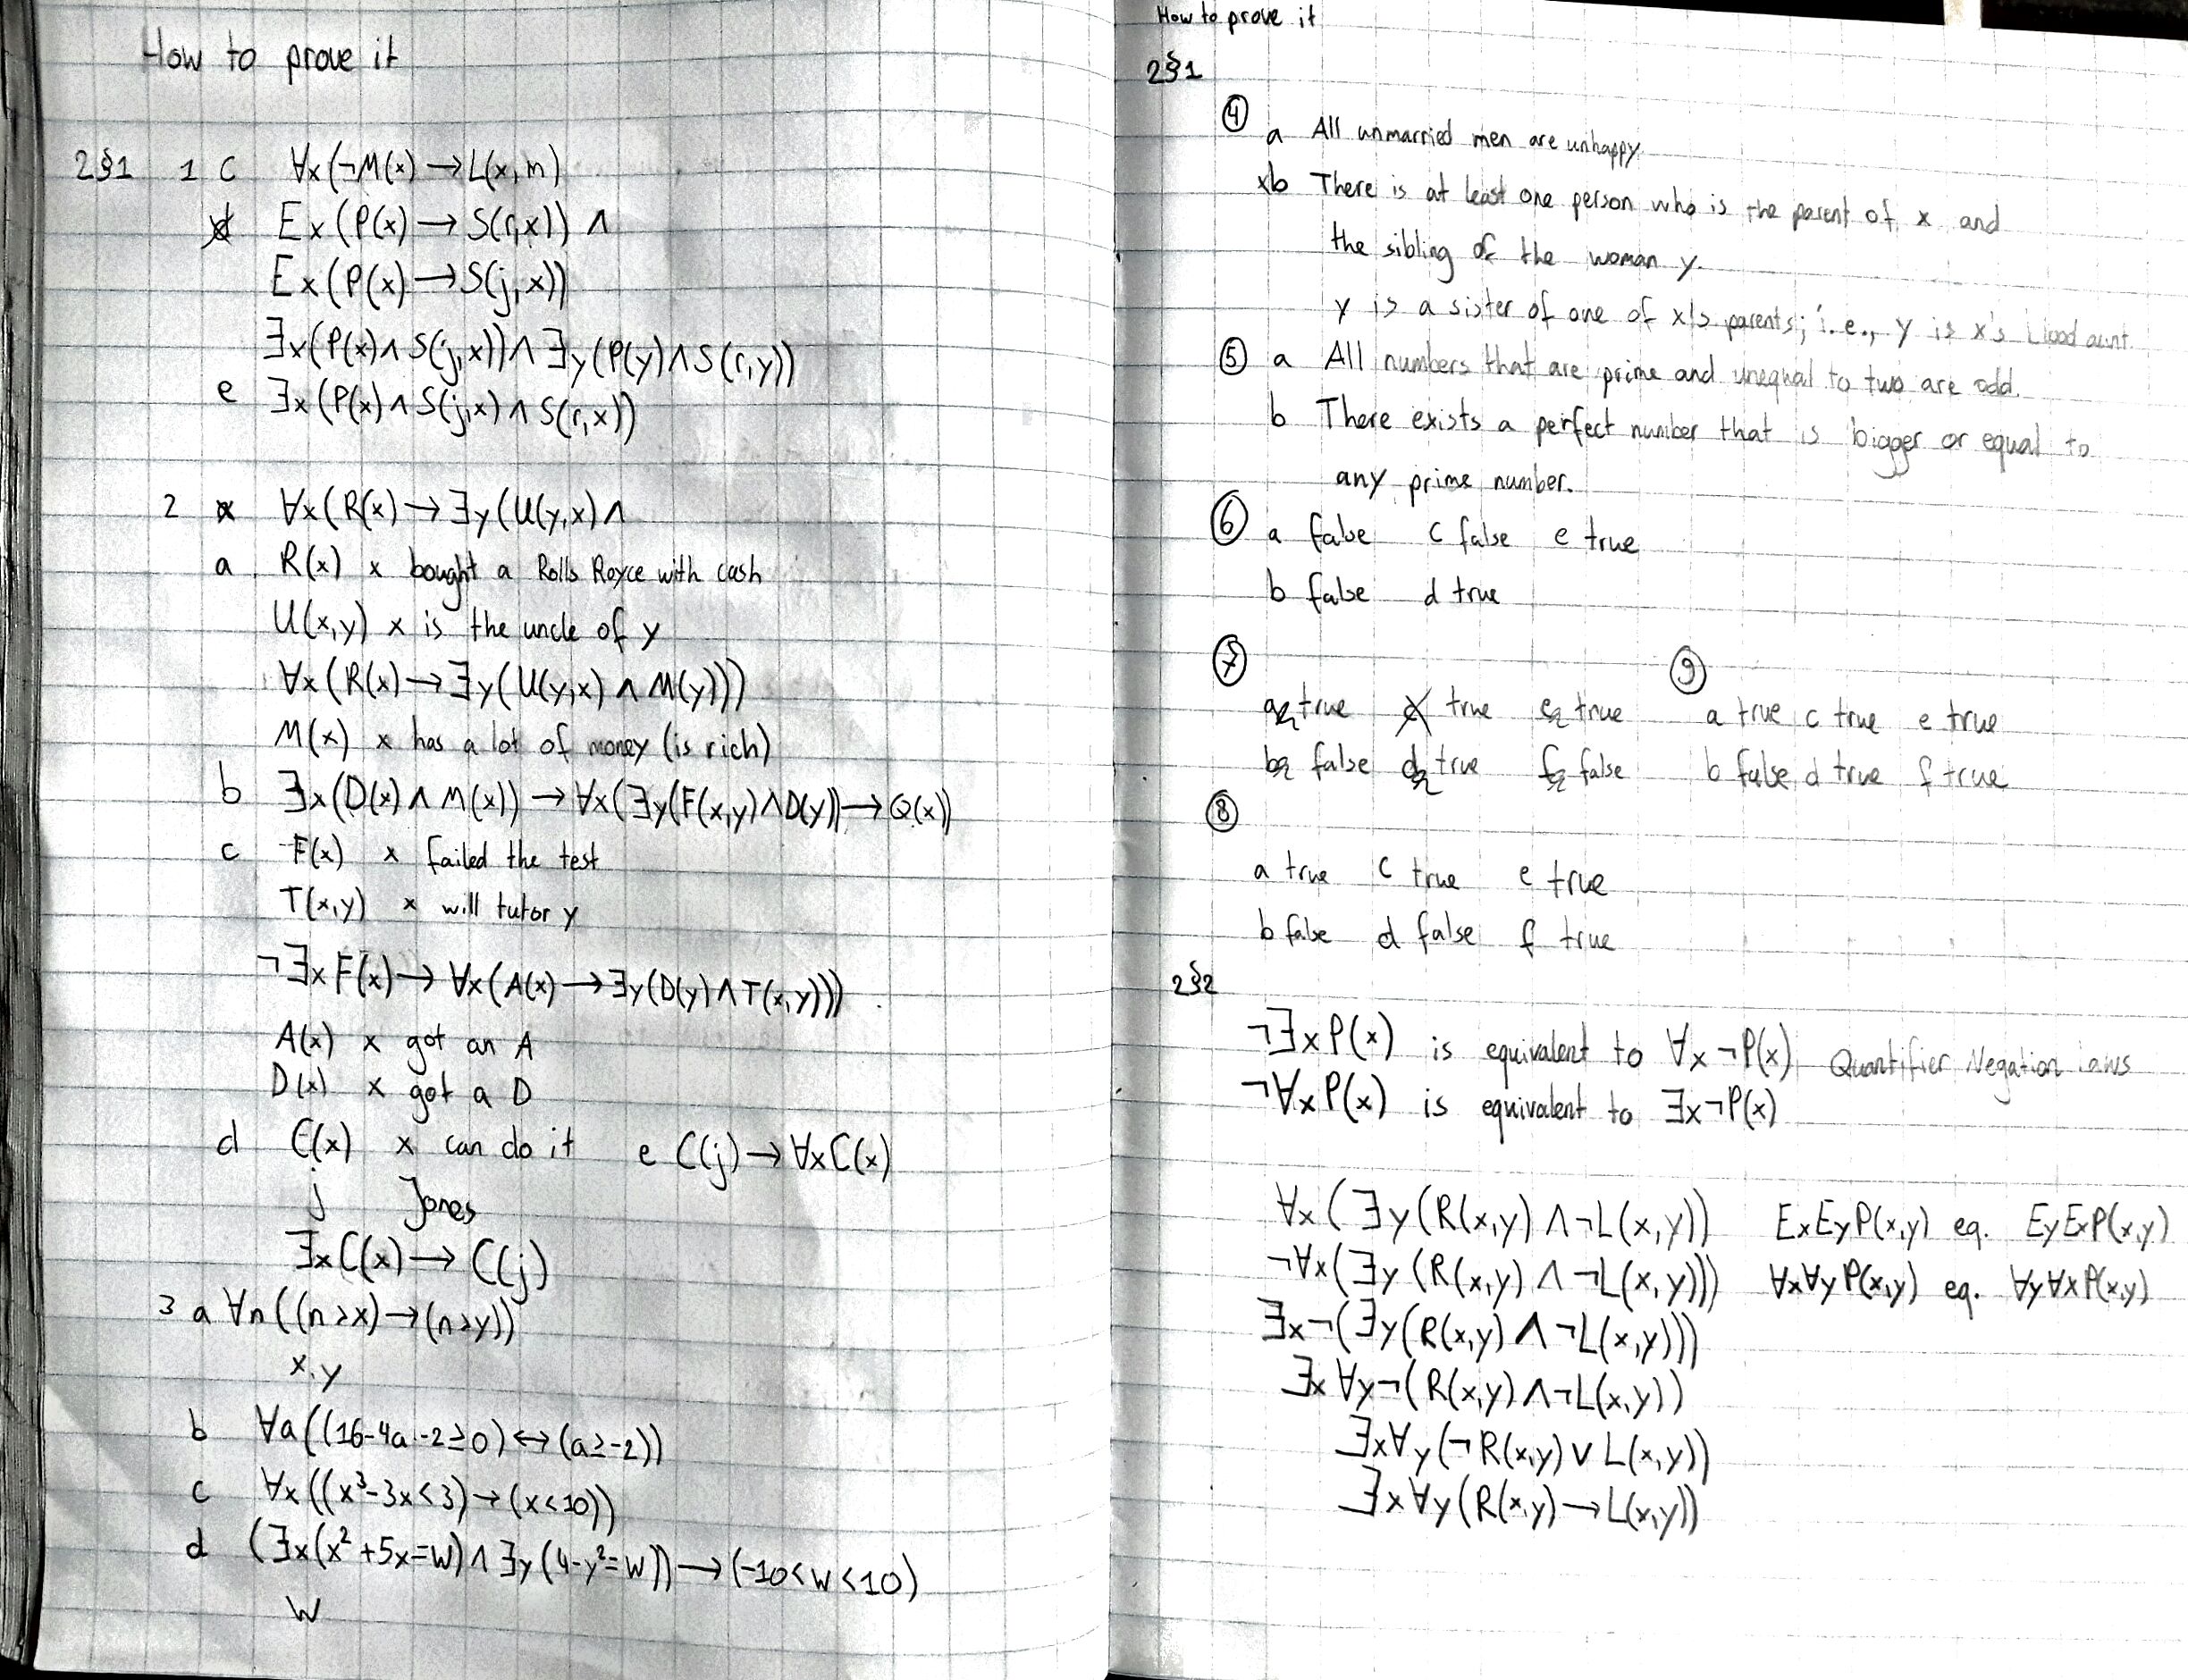 How to prove it
2§1 1 c ∀x(¬M(x)→L(x,m)
d Ex(P(x)→S(r,x)) ∧
Ex(P(x)→S(j,x))
∃x(P(x)∧S(j,x))∧∃y(P(y)∧S(r,y))
e ∃x(P(x)∧S(j,x)∧S(r,x))
2 a ∀x(R(x)→∃y(U(y,x)∧
a R(x) x bought a Rolls Royce with cash
U(x,y) x is the uncle of y
∀x(R(x)→∃y(U(y,x)∧M(y)))
M(x) x has a lot of money (is rich)
b ∃x(D(x)∧M(x))→∀x(∃y(F(x,y)∧D(y))→Q(x))
c F(x) x failed the test
T(x,y) x will tutor y
¬∃xF(x)→∀x(A(x)→∃y(D(y)∧T(x,y)))
A(x) x got an A
D(x) x got a D
d C(x) x can do it e C(j)→∀xC(x)
j Jones
∃xC(x)→C(j)
3 a ∀n((n>x)→(n>y))
x,y
b ∀a((16-4a-2≥0)↔(a≥-2))
c ∀x((x³-3x<3)→(x<10))
d (∃x(x²+5x=w)∧∃y(4-y²=w))→(-10<w<10)
w
How to prove it
2§1
④ a All unmarried men are unhappy.
xb There is at least one person who is the parent of x and
the sibling of the woman y.
y is a sister of one of x's parents; i.e., y is x's blood aunt.
⑤ a All numbers that are prime and unequal to two are odd.
b There exists a perfect number that is bigger or equal to
any prime number.
⑥ a false c false e true
b false d true
⑦ ⑨
a true c true e true a true c true e true
b false d true f false b false d true f true
⑧
a true c true e true
b false d false f true
2§2
¬∃xP(x) is equivalent to ∀x¬P(x) Quantifier Negation laws
¬∀xP(x) is equivalent to ∃x¬P(x)
∀x(∃y(R(x,y)∧¬L(x,y)) ExEyP(x,y) eq. EyExP(x,y)
¬∀x(∃y(R(x,y)∧¬L(x,y))) ∀x∀yP(x,y) eq. ∀y∀xP(x,y)
∃x¬(∃y(R(x,y)∧¬L(x,y)))
∃x∀y¬(R(x,y)∧¬L(x,y))
∃x∀y(¬R(x,y)∨L(x,y))
∃x∀y(R(x,y)→L(x,y))